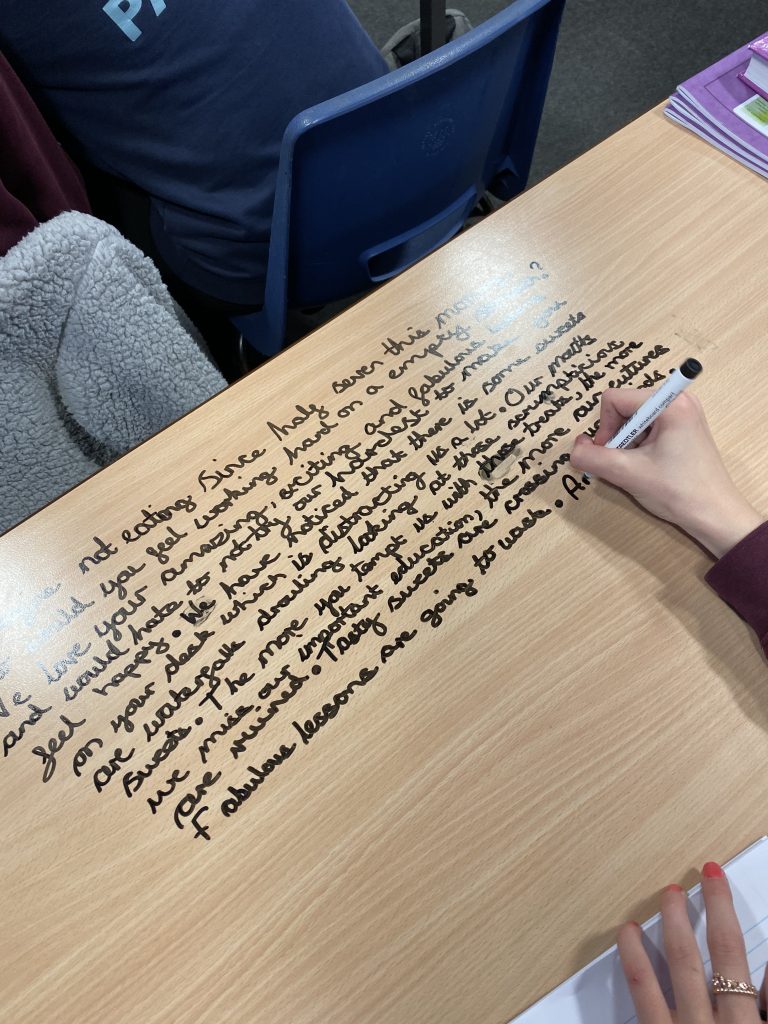 PA
not eating since half seven this
would you feel working hard on a empty
We love your amazing, exciting and fabulous
and would hate to not try our hardest to make you
feel happy. We have noticed that there is some sweets
on your desk which is distracting us a lot. Our mouths
are waterfalls drooling looking at those scrumptious
sweets. The more you tempt us with these treats, the more
we miss our important education, the more our futures
are ruined. Tasty sweets are crossing
Fabulous lessons are going to waste.
STAEDTLER